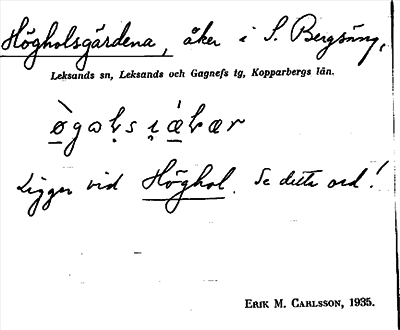 Högholsgärdena, åker i S. Bergsäng,
Leksands sn, Leksands och Gagnefs tg, Kopparbergs län.
Ligger vid Höghol. Se detta ord!
ERIK M. CARLSSON, 1935.